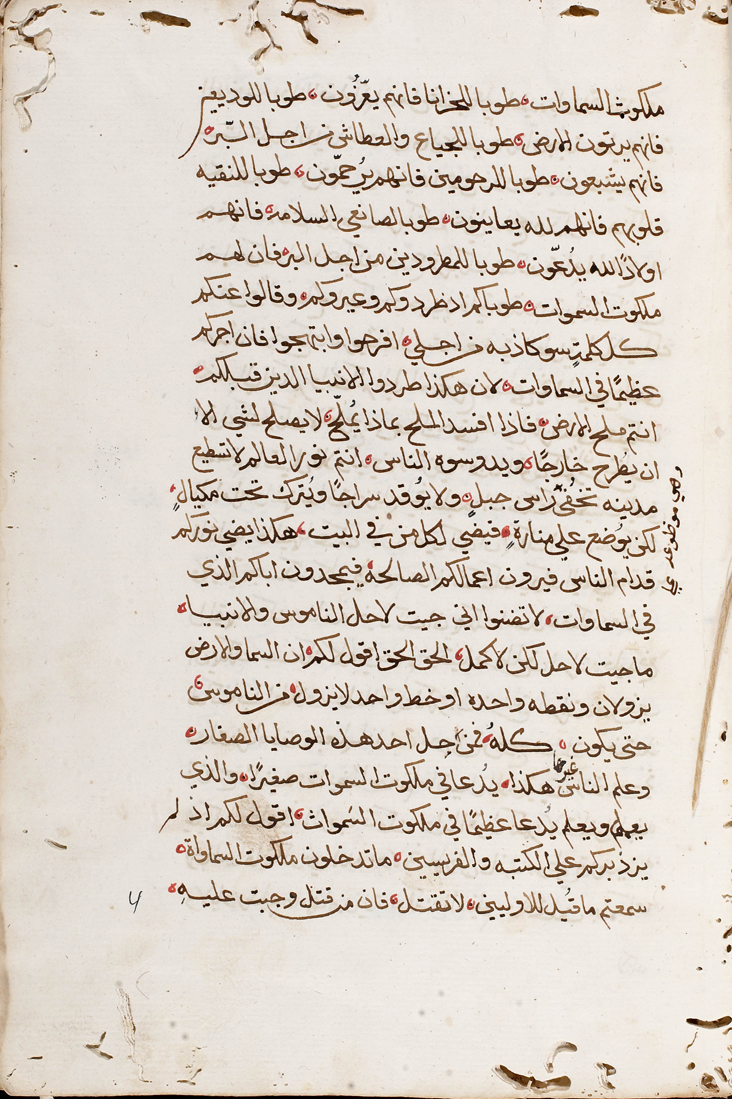 ملكوث السماوات طوبا للحزانا فانهم يعّزُون طوبا للوديعين
فانهم يرثون الارض طوبا للجياع والعطاش من اجل البّر
فانهم يشبعون طوبا للرحومين فانهم يُرحمّون طوبا للنقيه
قلوبهم فانهم لله يعاينون طوبا لصانعي السلامه فانهم
اولادًا لله يدُعّون طوبا للمطرودين من اجل البر فان لهم
ملكوت السموات طوباكم اد طردوكم وعيروكم وقالوا عنكم
كل كلمةٍ سو كاذبه من اجلي افرحوا وابتهجوا فان اجركم
عظيمًا في السماوات لان هكذا طردوا الانبيا الدين قبلكم
انتم ملح الارض فاذا افسد الملح بماذا يُملّح لا يصلح لشي الا
ان يطُرح خارجًا ويدوسوه الناس انتم نور العالم لا تسطيع
مدينه تخفُي راس جبلٍ ولا يوُقد سراجًا ويُترك تحت مكيالٍ
لكن يوُضع علي منارةٍ فيضي لكل من في البيت هكذا يضي نوركم
قدام الناس فيرون اعمالكم الصالحة فيمجدون اباكم الذي
في السماوات لا تضنوا اني جيت لاحل الناموس والانبيا
ما جيت لاحل لكن لاكمل الحق الحق اقول لكم ان السما والارض
يزولان ونقطه واحده او خط واحد لا يزول من الناموس
حتي يكون كلهُ فمن احل احد هذه الوصايا الصغار
وعلم الناس هكذا يدُعا في ملكوت السموات صغيرًا والذي
يعمل ويعلم يدُعا عظيمًا في ملكوت السَموات اقول لكم اذ لم
يزد بركم علي الكتبه والفريسين ما تدخلون ملكوت السماواة
سمعتم ما قيُل للاوليني لا تقتل فان من قتل وجبت عليهِ